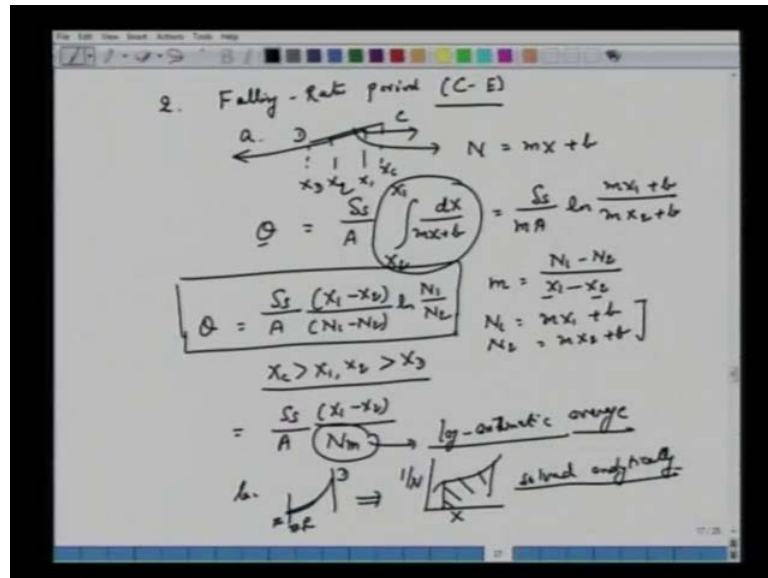 File Edit View Insert Actions Tools Help
2. Falling-Rate period (C-E)
a. D C
x_D x_2 x_1 x_c
N = mx + b
θ = S_s/A ∫_{x_2}^{x_1} dx/(mx+b) = S_s/(mA) ln (mx_1+b)/(mx_2+b)
m = (N_1 - N_2)/(x_1 - x_2)
θ = S_s/A (x_1-x_2)/(N_1-N_2) ln N_1/N_2
N_1 = mx_1 + b
N_2 = mx_2 + b
x_c > x_1, x_2 > x_D
= S_s/A (x_1-x_2)/N_m → log-arithmetic average
b. D ⇒ 1/N x solved analytically
17 / 25
17